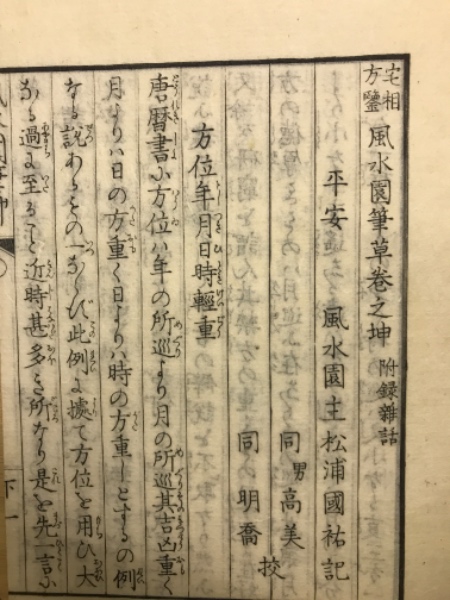 宅相方鑒 風水園筆草卷之坤 附録雜話
平安 風水園主松浦國祐記
男 高美
同 明喬 校
方位年月日時輕重
唐暦書に方位ハ年の所巡より月の所巡其吉凶重く
月よりハ日の方重く日よりハ時の方重しとするの例
なる説わ此例に據て方位を用ひ大
過に至ること近時甚多き所なり是を先一言に
下 一